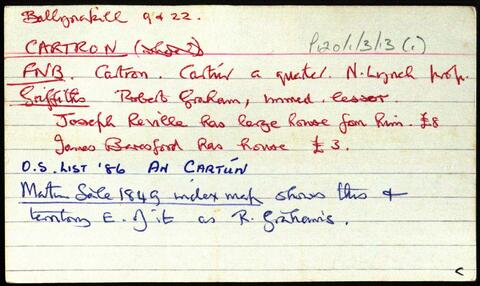 Ballynakill 9 & 22.
CARTRON (shore?) P120/1/3/13 (i)
FNB. Cartron. Cartúr a quarter. N. Lynch prop.
Griffiths Robert Graham, immed. lessor.
Joseph Reville has large house from him. £8
James Baresford has house £3.
O.S. LIST '86 AN CARTÚN
Martin Sale 1849 index map shows this &
territory E. of it as R. Graham's.
C